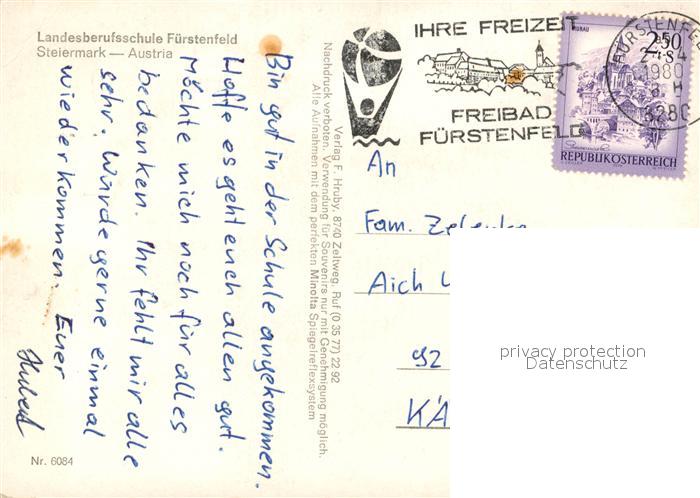 Landesberufsschule Fürstenfeld
Steiermark — Austria
Bin gut in der Schule angekommen.
Hoffe es geht euch allen gut.
Möchte mich noch für alles
bedanken. Ihr fehlt mir alle
sehr. Würde gerne einmal
wieder kommen. Euer
Hubert
Nr. 6084
Verlag F. Hruby, 8740 Zeltweg, Ruf (0 35 77) 22 92
Nachdruck verboten. Verwendung für Souvenirs nur mit Genehmigung möglich.
Alle Aufnahmen mit dem perfekten Minolta Spiegelreflexsystem
IHRE FREIZEIT
FREIBAD
FÜRSTENFELD
FÜRSTENFE
1980
8280
MURAU
2.50
REPUBLIK ÖSTERREICH
An
Fam.
Aich
92
KÄ
privacy protection
Datenschutz